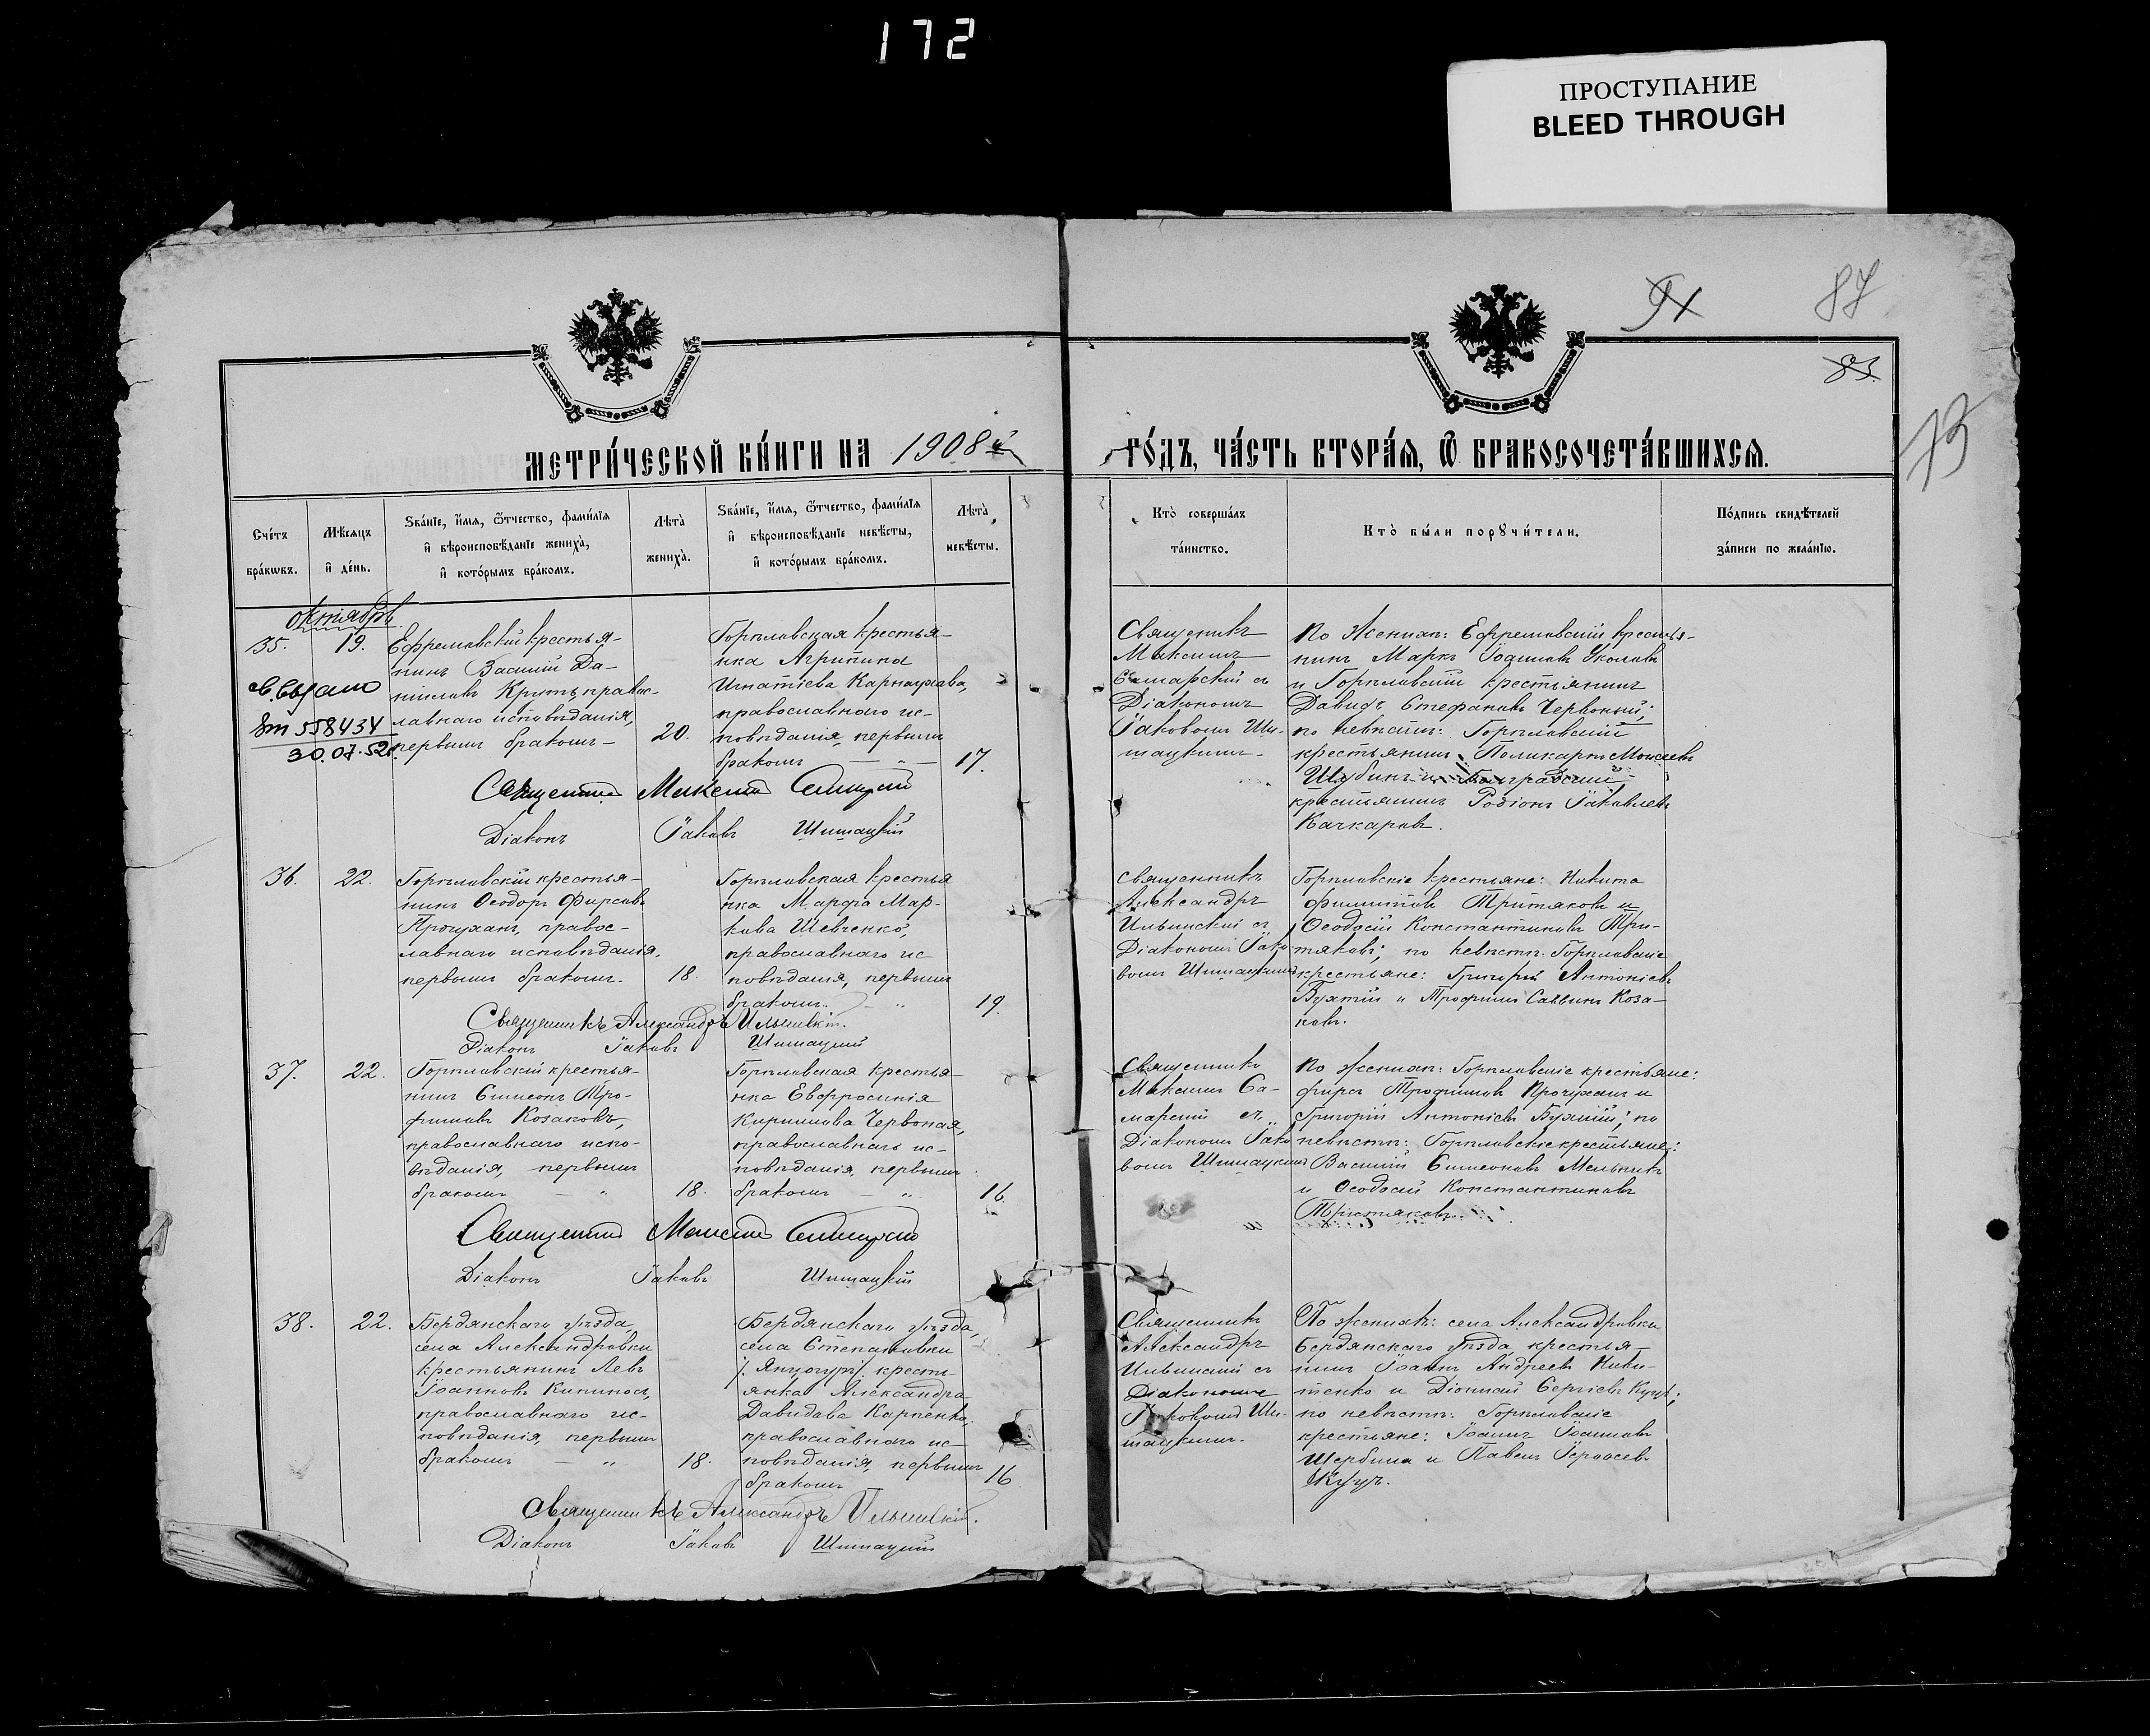 172
ПРОСТУПАНИЕ
BLEED THROUGH
87
83.
73
МЕТРИ́ЧЕСКОЙ КНИ́ГИ НА 1908й
ГО́ДЪ, ЧА́СТЬ ВТОРА́Я, Ѿ БРАКОСОЧЕТА́ВШИХСЯ.
Сче́тъ бра́кѡвъ.
Мѣ́сяцъ и҆ де́нь.
Зва́нїе, и҆́мя, ѻ҆́тчество, фами́лїя
и҆ вѣроисповѣ́данїе жениха̀,
и҆ кото́рымъ бра́комъ.
Лѣ́та̀ жениха̀.
Зва́нїе, и҆́мя, ѻ҆́тчество, фами́лїя
и҆ вѣроисповѣ́данїе невѣ́сты,
и҆ кото́рымъ бра́комъ.
Лѣ́та̀ невѣ́сты.
Кто̀ соверша́лъ
та́инство.
Кто̀ бы́ли порꙋчи́тели.
По́дпись свидѣ́телей
за́писи по жела́нїю.
октябрь
35.
19.
Ефремовскій крестья-
нинъ Василій Да-
ниловъ
правос-
лавнаго исповѣданія,
первымъ бракомъ -
20.
558434
30.07.52г.
Горѣловская крестья-
нка Агрипина
Игнатіева Карнаухова,
православнаго ис-
повѣданія, первымъ
бракомъ — „ —
17.
Священникъ
Максимъ
Самарскій съ
Діакономъ
Іаковомъ Ши-
шацкимъ.
По женихѣ: Ефремовскій крестья-
нинъ Маркъ Іоанновъ
и Горѣловскій крестьянинъ
Давидъ Стефановъ Червоный;
по невѣстѣ: Горѣловскій
крестьянинъ Поликарпъ Моисеевъ
крестьянинъ Родіонъ Іаковлевъ
Качкаровъ.
Священникъ Максимъ Самарскій
Діаконъ Іаковъ Шишацкій
36.
22.
Горѣловскій крестья-
нинъ Ѳеодоръ Фирсовъ
Прочуханъ, правос-
лавнаго исповѣданія,
первымъ бракомъ.
18.
Горѣловская крестья
нка Марфа Мар-
кова Шевченко,
православнаго ис-
повѣданія, первымъ
бракомъ. — „
19.
Священникъ
Александръ
Ильинскій съ
Діакономъ Іако-
вомъ Шишацкимъ
Горѣловскіе крестьяне: Никита
Филиптовъ Тритяковъ и
Ѳеодосій Константиновъ Три-
тяковъ; по невѣстѣ: Горѣловскіе
крестьяне: Григорій Антоніевъ
Буятій и Трофимъ Саввинъ Коза-
ковъ.
Священникъ Александръ Ильинскій.
Діаконъ Іаковъ Шишацкій
37.
22.
Горѣловскій крестья-
нинъ Симеонъ Тро-
фимовъ Козаковъ,
православнаго испо-
вѣданія, первымъ
бракомъ — „
18.
Горѣловская крестья-
нка Евфросинія
Кириллова Червоная,
православнаго ис-
повѣданія, первымъ
бракомъ — „
16.
Священникъ
Максимъ Са-
марскій съ
Діакономъ Іако
вомъ Шишацкимъ
По женихѣ: Горѣловскіе крестьяне:
Фирсъ Трофимовъ Прочуханъ и
Григорій Антоніевъ Буятій; по
невѣстѣ: Горѣловскіе крестьяне:
Василій Симеоновъ Мельникъ
и Ѳеодосій Константиновъ
Тритяковъ.
Священникъ Максимъ Самарскій
Діаконъ Іаковъ Шишацкій
38.
22.
Бердянскаго уѣзда,
села Александровки
крестьянинъ Левъ
Іоанновъ
православнаго ис-
повѣданія, первымъ
бракомъ — „
18.
Бердянскаго уѣзда,
села Степановки
крестъ-
янка Александра
Давидова Карпенко,
православнаго ис-
повѣданія, первымъ
бракомъ
16
Священникъ
Александръ
Ильинскій съ
Діакономъ
Іаковомъ Ши-
шацкимъ.
По женихѣ: села Александровки
Бердянскаго уѣзда, крестья-
нинъ Іоаннъ Андреевъ Ники-
тенко и Діонисій Сергіевъ Куцъ;
по невѣстѣ: Горѣловскіе
крестьяне: Іоаннъ Іоанновъ
Щербина и Павелъ
Куцъ.
Священникъ Александръ Ильинскій.
Діаконъ Іаковъ Шишацкій